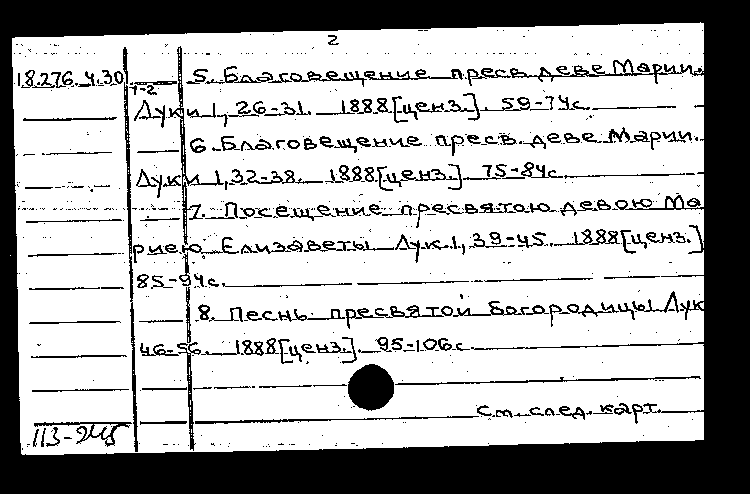 2
18.276.4.30 5. Благовещение пресв. деве Марии.
1-2
Луки 1, 26-31. 1888[ценз.]. 59-74с.
6. Благовещение пресв. деве Марии.
Луки 1,32-38. 1888[ценз.]. 75-84с.
7. Посещение пресвятою девою Ма
риею Елизаветы Лук.1, 39-45. 1888[ценз.]
85-94с.
8. Песнь пресвятой Богородицы Лук
46-56. 1888[ценз.]. 95-106с.
См. след. карт.
113-245